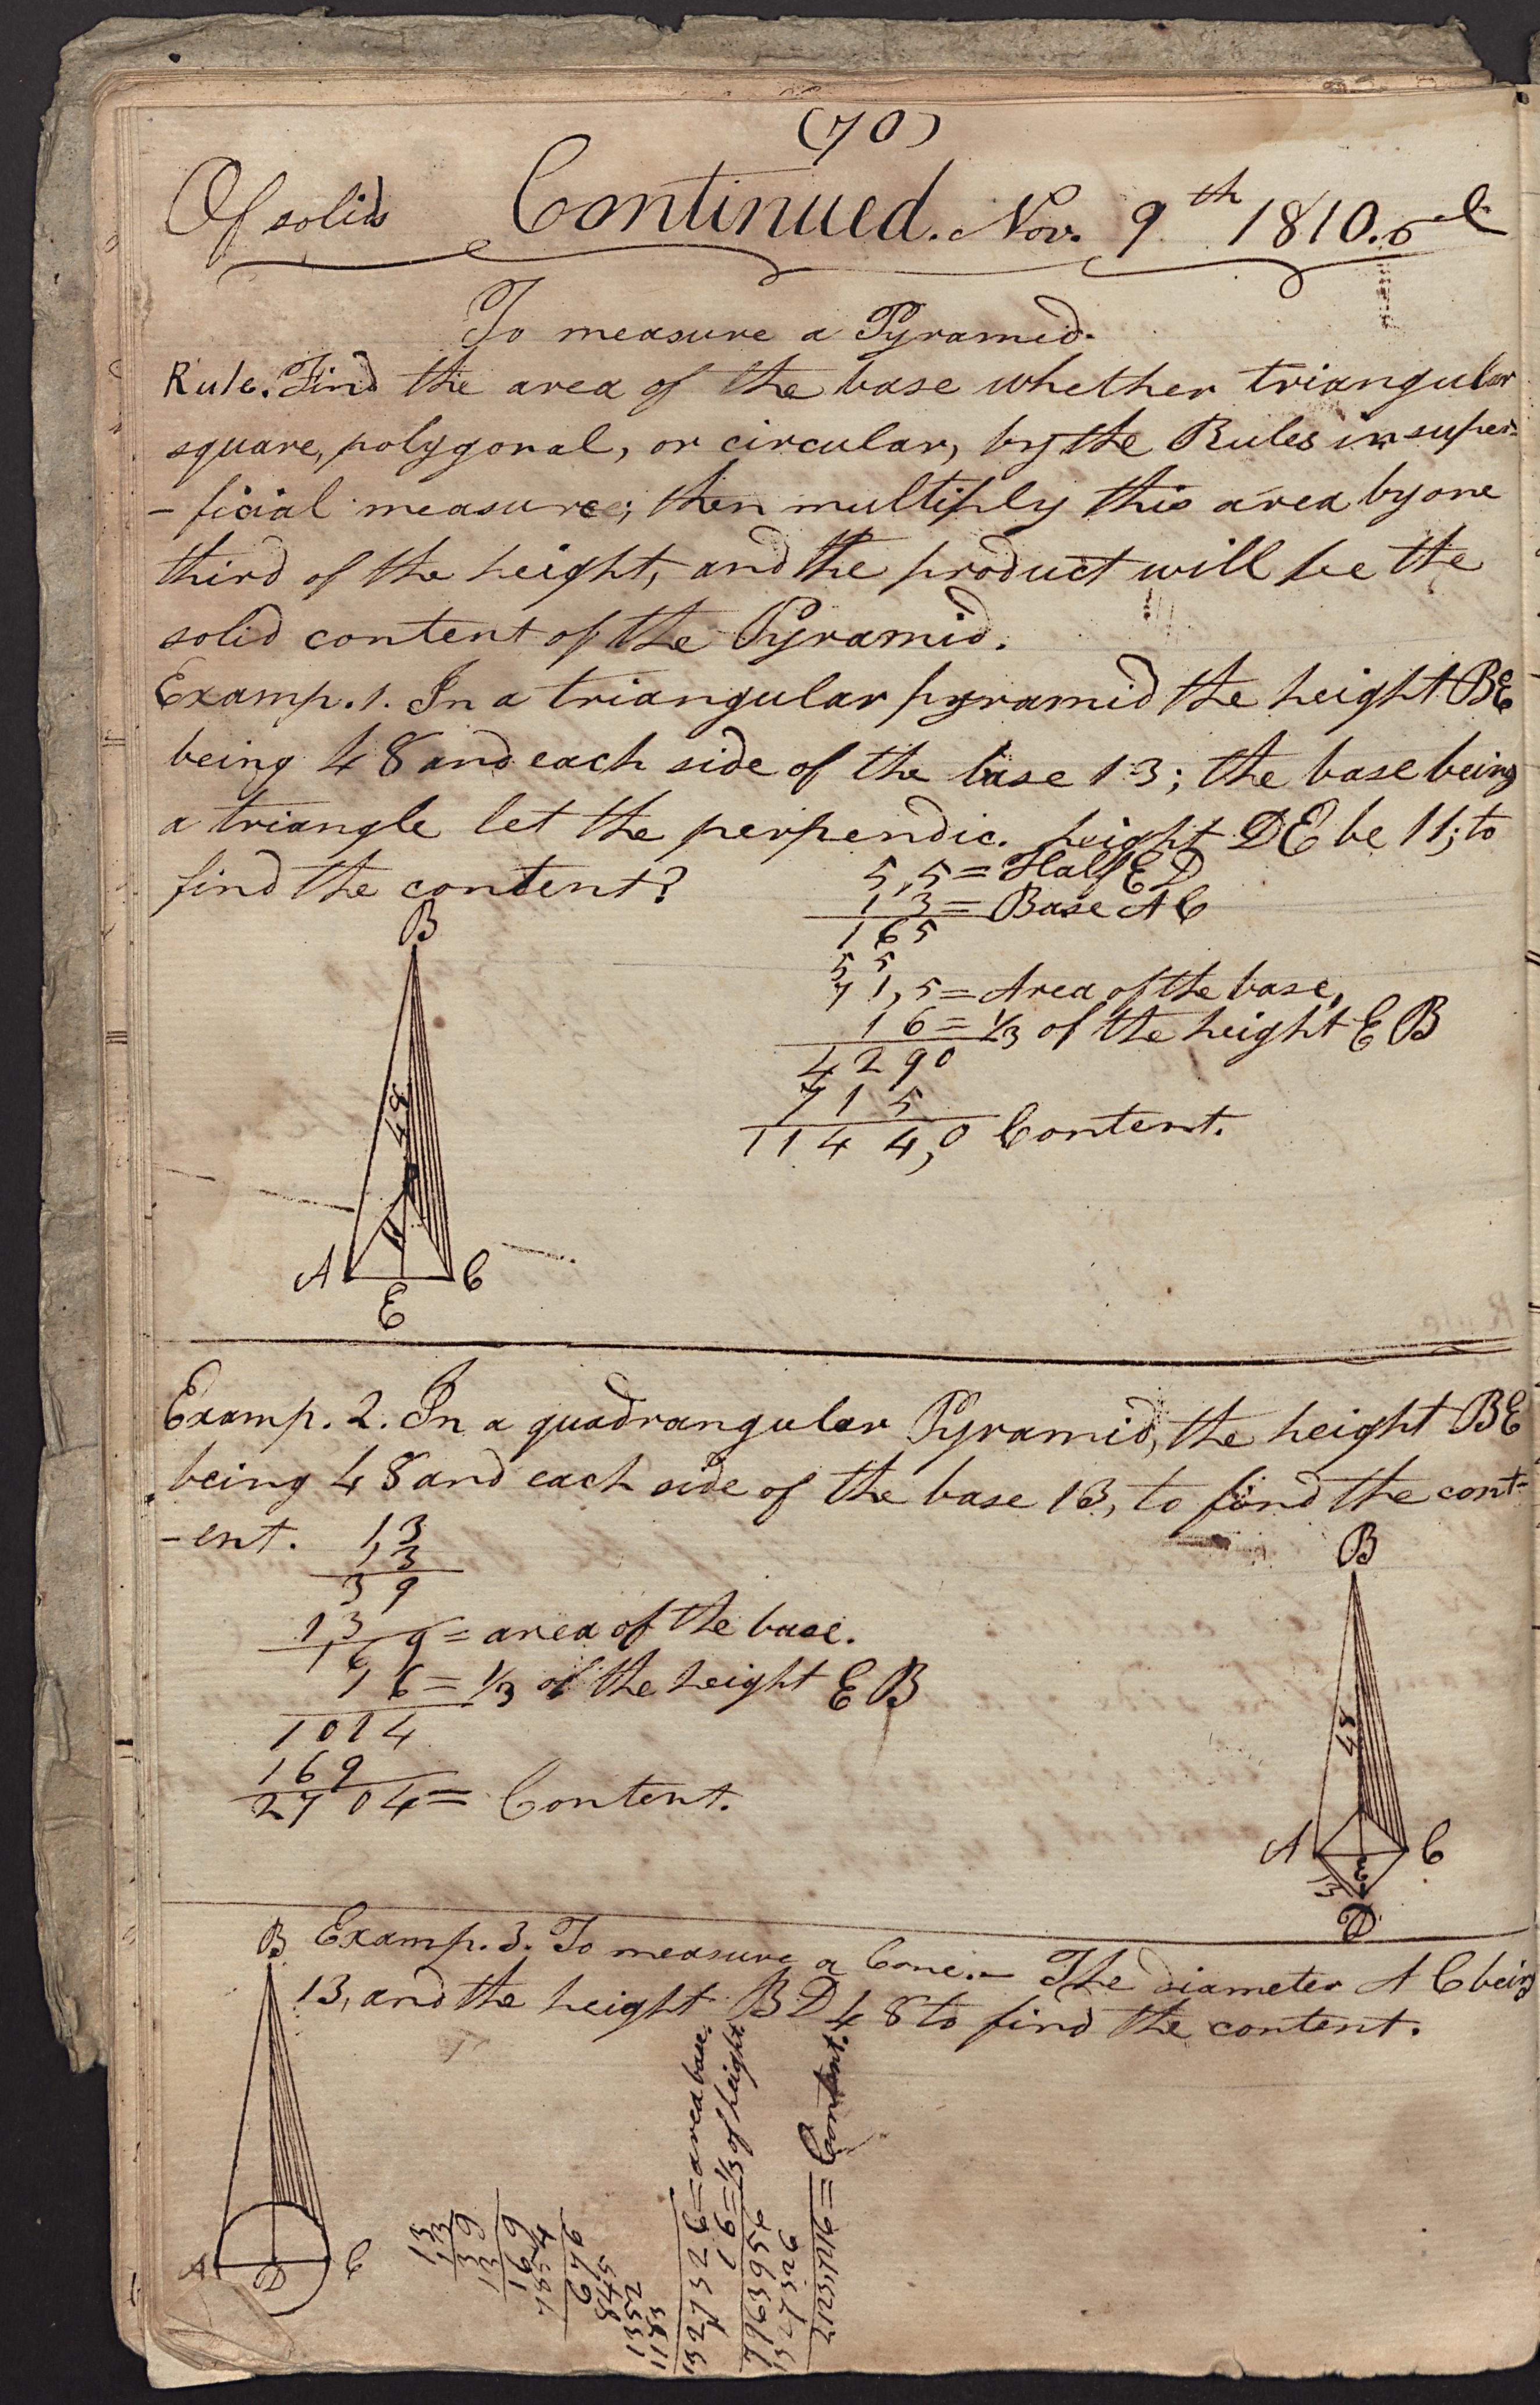 (70)
Of solids Continued. Nov. 9th 1810.
To measure a Pyramid.
Rule. Find the area of the base whether triangular
square, polygonal, or circular, by the Rules in super-
-ficial measure; then multiply this area by one
third of the height, and the product will be the
solid content of the Pyramid.
Examp. 1. In a triangular pyramid the height BE
being 48 and each side of the base 13; the base being
a triangle let the perpendic. height DE be 11; to
find the content?
5,5 = Half ED
13 = Base AC
165
55
71,5 = Area of the base,
16 = 1/3 of the height EB
4290
715
1144,0 Content.
B
48
11
A C
E
Examp. 2. In a quadrangular Pyramid, the height BE
being 48 and each side of the base 13, to find the cont-
-ent.
13
13
39
13
169 = area of the base.
16 = 1/3 of the height EB
1014
169
2704 = Content.
B
48
A E C
13
D
B
Examp. 3. To measure a Cone. - The diameter AC being
13, and the height BD 48 to find the content.
A D C
13
13
39
13
169
7854
676
845
1352
1183
1327326 = area base.
16 = 1/3 of height
7963956
1327326
= Content.